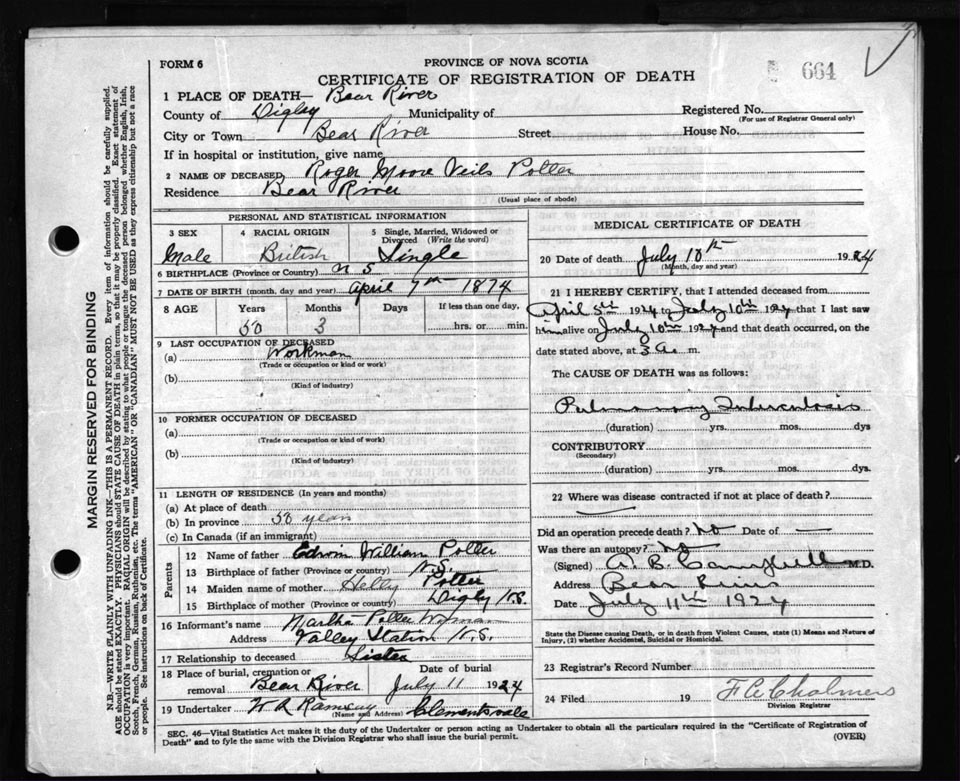 FORM 6
PROVINCE OF NOVA SCOTIA
CERTIFICATE OF REGISTRATION OF DEATH
664
1 PLACE OF DEATH— Bear River
County of Digby Municipality of
Registered No.
(For use of Registrar General only)
City or Town Bear River Street House No.
If in hospital or institution, give name
2 NAME OF DECEASED Roger Moore Potter
Residence Bear River
(Usual place of abode)
PERSONAL AND STATISTICAL INFORMATION
3 SEX Male
4 RACIAL ORIGIN British
5 Single, Married, Widowed or Divorced (Write the word) Single
6 BIRTHPLACE (Province or Country) N S
7 DATE OF BIRTH (month, day and year) April 7th 1874
8 AGE Years Months If less than one day,
50 3 hrs. or min.
9 LAST OCCUPATION OF DECEASED
(a) Workman
(Trade or occupation or kind or work)
(b)
(Kind of industry)
10 FORMER OCCUPATION OF DECEASED
(a)
(Trade or occupation or kind of work)
(b)
(Kind of industry)
11 LENGTH OF RESIDENCE (In years and months)
(a) At place of death
(b) In province 50 years
(c) In Canada (if an immigrant)
Parents
12 Name of father Edwin William Potter
13 Birthplace of father (Province or country) N.S.
14 Maiden name of mother Potter
15 Birthplace of mother (Province or Country) Digby N.S.
16 Informant's name Martha Potter
Address Valley Station N.S.
17 Relationship to deceased Sister
18 Place of burial, cremation or removal Bear River
Date of burial July 11 1924
19 Undertaker W A Ramsay Clementsvale
(Name and Address)
MEDICAL CERTIFICATE OF DEATH
20 Date of death July 10th 1924
(Month, day and year)
21 I HEREBY CERTIFY, that I attended deceased from
April 5th 1924 to July 10th 1924 that I last saw
him alive on July 10th 1924 and that death occurred, on
date stated above, at 3 a. m.
The CAUSE OF DEATH was as follows:
Pulmonary Tuberculosis
(duration) yrs. mos. dys
CONTRIBUTORY
(Secondary)
(duration) yrs. mos. dys.
22 Where was disease contracted if not at place of death?
Did an operation precede death? No Date of —
Was there an autopsy? No
(Signed) A. B. Campbell M.D.
Address Bear River
Date July 11th 1924
State the Disease causing Death, or in death from Violent Causes, state (1) Means and Nature of
Injury, (2) whether Accidental, Suicidal or Homicidal.
23 Registrar's Record Number
24 Filed 19 Chalmers
Division Registrar
SEC. 46—Vital Statistics Act makes it the duty of the Undertaker or person acting as Undertaker to obtain all the particulars required in the "Certificate of Registration of
Death" and to fyle the same with the Division Registrar who shall issue the burial permit. (OVER)
MARGIN RESERVED FOR BINDING
N.B.—WRITE PLAINLY WITH UNFADING INK—THIS IS A PERMANENT RECORD. Every item of information should be carefully supplied.
AGE should be stated EXACTLY. PHYSICIANS should STATE CAUSE OF DEATH in plain terms, so that it may be properly classified. Exact statement of
OCCUPATION is very important. RACIAL ORIGIN will be described by stating to what people or tongue the deceased person belonged whether English, Irish,
Scotch, French, German, Russian, Ruthenian, etc. The terms "AMERICAN" or "CANADIAN" MUST NOT BE USED as they express citizenship but not a race
or people. See instructions on back of Certificate.